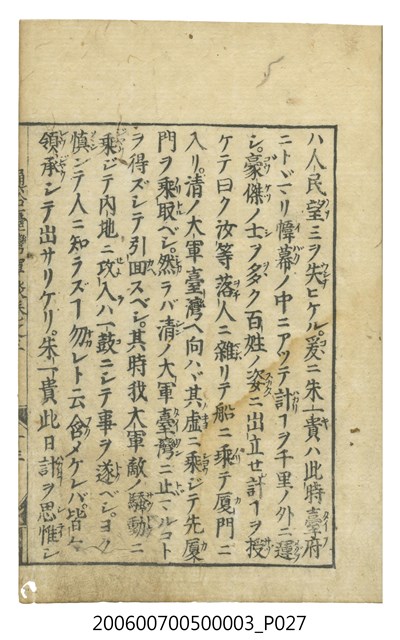 ハ人民望ミヲ失ヒケル。爰ニ朱一貴ハ此時臺府
ニトドマリ幃幕ノ中ニアツテ計ヿヲ千里ノ外ニ運
シ。豪傑ノ士ヲ多ク百姓ノ姿ニ出立セ計ヿヲ授
ケテ曰ク汝等落人ニ雜リテ船ニ乘テ厦門ニ
入リ。清ノ大軍臺灣ヘ向ハヾ其虚ニ乘ジテ先厦
門ヲ乘取ベシ。然ラバ清ノ大軍臺灣ニ止マルコト
ヲ得ズシテ引面スベシ。其時我大軍敵ノ騷動ニ
乘ジテ内地ニ攻入ハ一鼓ニシテ事ヲ遂ベシ。ヨク
慎ンテ人ニ知ラスヿ勿レト云含メケレバ。皆々
領承シテ出サリケリ。朱一貴此日計ヲ思惟シ
200600700500003_P027